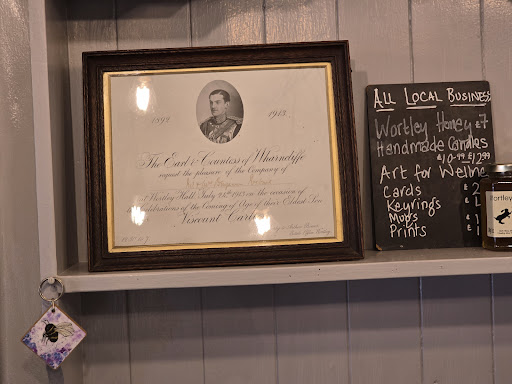 1892
1913
The Earl & Countess of Wharncliffe
request the pleasure of the Company of
at Wortley Hall, July 24th 1913 on the occasion of
the celebrations of the Coming of Age of their Eldest Son
Viscount Carlton
R.S.V.P.
ALL LOCAL BUSINESS
Wortley Honey £7
Handmade Candles
£10.99 £12.99
Art for Wellne
Cards
Keyrings
Mugs
Prints
ortley